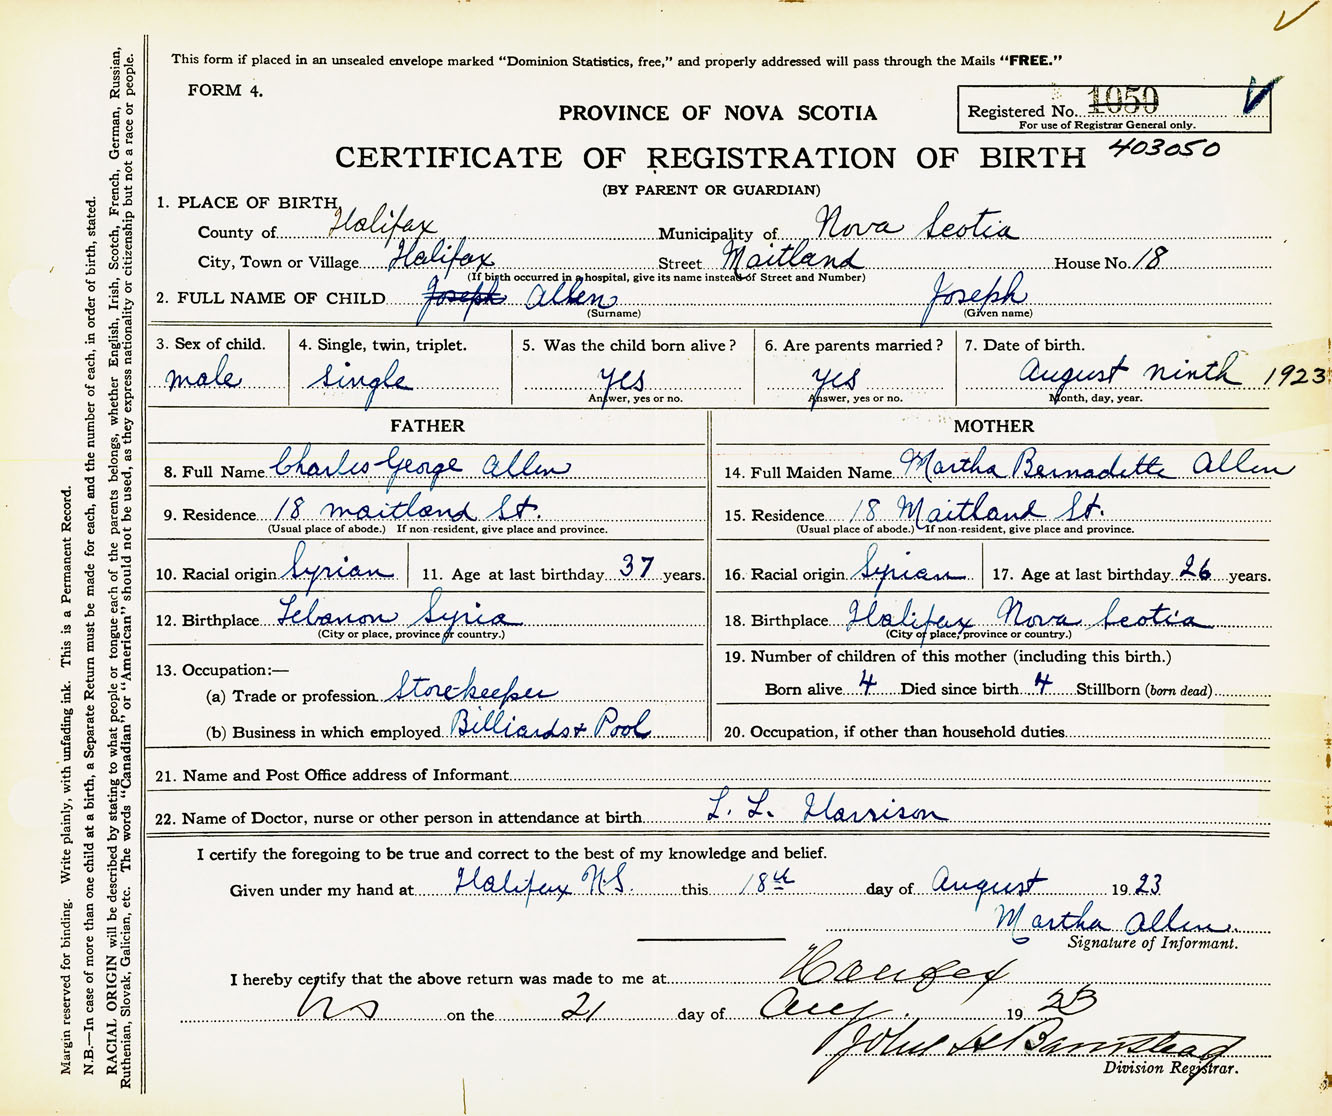 This form if placed in an unsealed envelope marked "Dominion Statistics, free," and properly addressed will pass through the Mails "FREE."
FORM 4.
PROVINCE OF NOVA SCOTIA
Registered No. 1050
For use of Registrar General only.
CERTIFICATE OF REGISTRATION OF BIRTH 403050
(BY PARENT OR GUARDIAN)
1. PLACE OF BIRTH
County of Halifax Municipality of Nova Scotia
City, Town or Village Halifax Street Maitland House No. 18
(If birth occurred in a hospital, give its name instead of Street and Number)
2. FULL NAME OF CHILD Joseph Allen Joseph
(Surname) (Given name)
3. Sex of child. 4. Single, twin, triplet. 5. Was the child born alive? 6. Are parents married? 7. Date of birth.
male single yes yes August ninth 1923
Answer, yes or no. Answer, yes or no. Month, day, year.
FATHER MOTHER
8. Full Name Charles George Allen 14. Full Maiden Name Martha Bernadette Allen
9. Residence 18 Maitland St. 15. Residence 18 Maitland St.
(Usual place of abode.) If non-resident, give place and province. (Usual place of abode.) If non-resident, give place and province.
10. Racial origin Syrian 11. Age at last birthday 37 years. 16. Racial origin Syrian 17. Age at last birthday 26 years.
12. Birthplace Lebanon Syria 18. Birthplace Halifax Nova Scotia
(City or place, province or country.) (City or place, province or country.)
13. Occupation:— 19. Number of children of this mother (including this birth.)
(a) Trade or profession Storekeeper Born alive 4 Died since birth 4 Stillborn (born dead)
(b) Business in which employed Billiards & Pool 20. Occupation, if other than household duties
21. Name and Post Office address of Informant
22. Name of Doctor, nurse or other person in attendance at birth L. L. Harrison
I certify the foregoing to be true and correct to the best of my knowledge and belief.
Given under my hand at Halifax N.S. this 18th day of August 1923
Martha Allen
Signature of Informant.
I hereby certify that the above return was made to me at Halifax
NS on the 21 day of Aug. 1923
John H Barnstead
Division Registrar.
Margin reserved for binding. Write plainly, with unfading ink. This is a Permanent Record.
N.B.—In case of more than one child at a birth, a Separate Return must be made for each, and the number of each, in order of birth, stated.
RACIAL ORIGIN will be described by stating to what people or tongue each of the parents belongs, whether English, Irish, Scotch, French, German, Russian,
Ruthenian, Slovak, Galician, etc. The words "Canadian" or "American" should not be used, as they express nationality or citizenship but not a race or people.